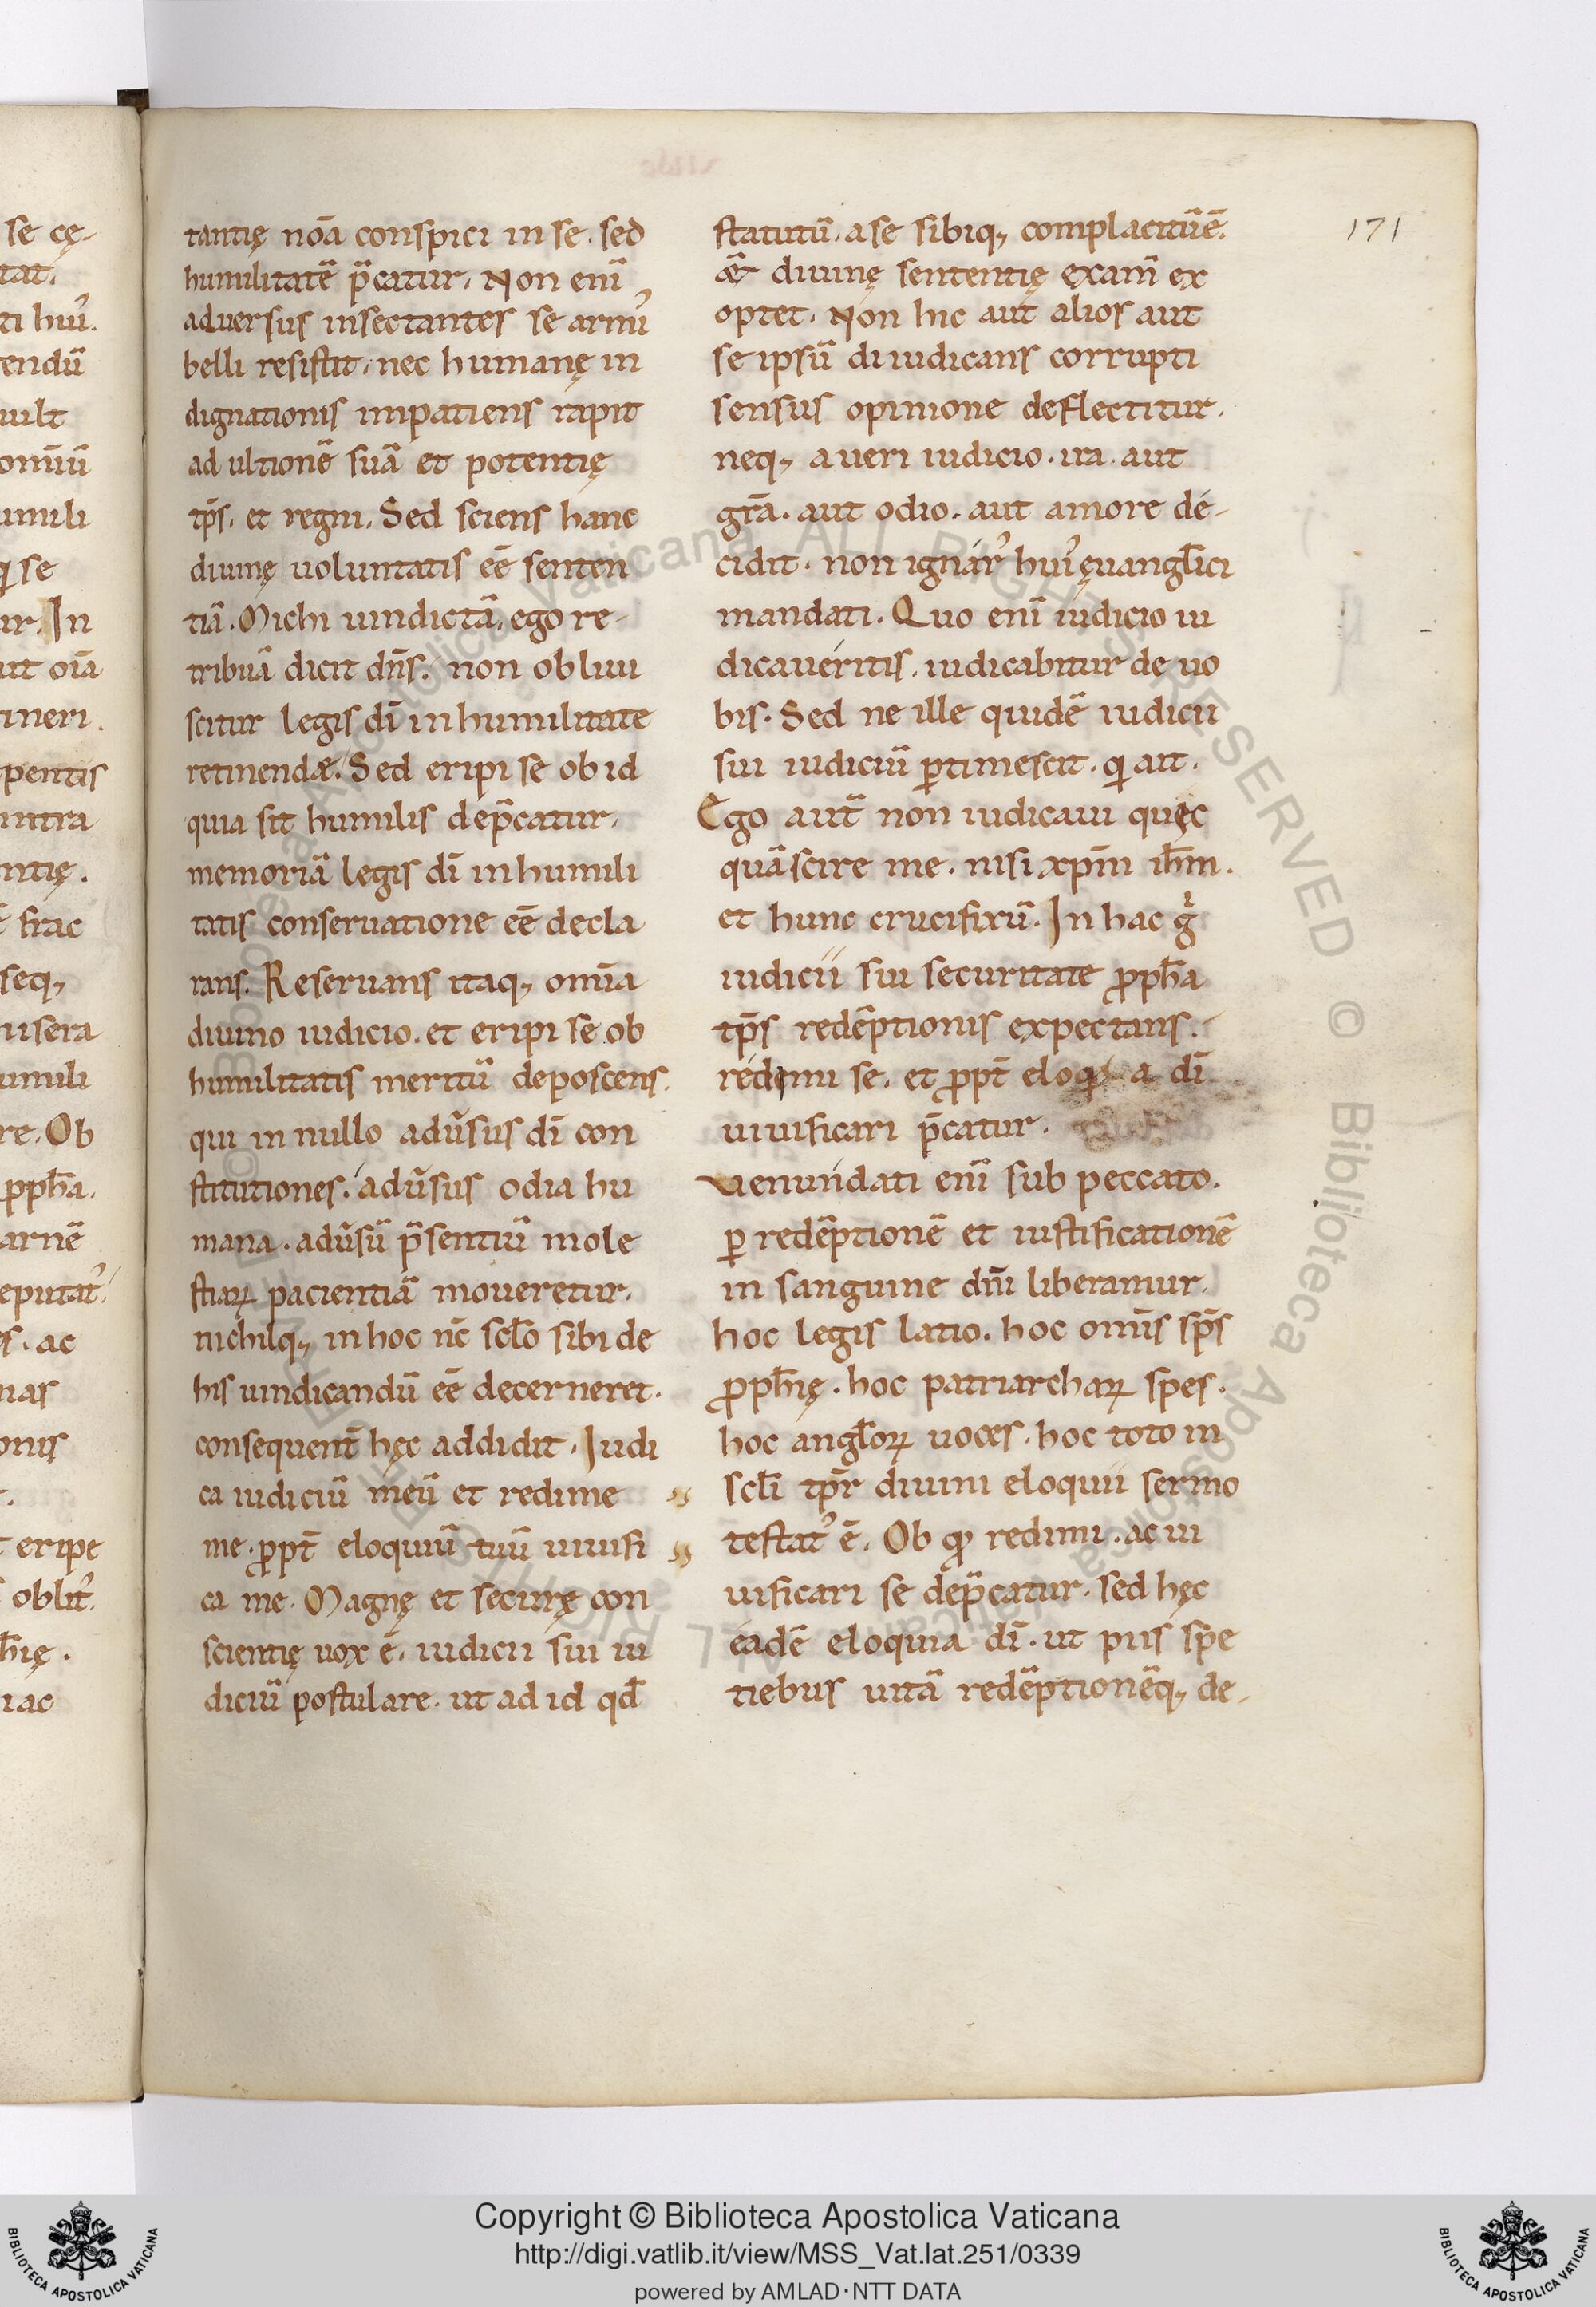 se cę-
tat.
ti hui᾽.
tendū
uult
omīū
umili
qi se
ur. In
ut oīa
ineri.
pentis
intra
ntię.
frac
seq;
usera
umili
re. Ob
pph̄a.
arnē
eputat᾽.
s. ac
uas
onis
eripe
oblit᾽.
h̄ię.
iac
tantię nōa conspici in se. sed
humilitatē p̄catur. Non enī
aduersus insectantes se arm᾽
belli resistit. nec humanę in
dignationis impatiens rapit
ad ultionē suā et potentię
tp̄s. et regni. Sed sciens hanc
diuinę uoluntatis eē senten
tiā. Michi uindictā. ego re-
tribuā dicit dn̄s. non obliui
scitur legis dī in humilitate
retinendæ. Sed eripi se ob id
quia sit humilis dep̄catur.
memoriā legis dī in humili
tatis conseruatione eē decla
rans. Reseruans itaq; omīa
diuino iudicio. et eripi se ob
humilitatis meritū deposcens.
qui in nullo adūsus dī con
stitutiones. adūsus odia hu
mana. adūsū p̄sentiū mole
stiaꝝ pacientiā moueretur.
nichilq; in hoc nc̄ scl̄o sibi de
his uindicandū eē decerneret.
consequent̄ hęc addidit. Iudi
ca iudiciū meū et redime
me. ꝓpt̄ eloquiū tuū uiuifi
ca me. Magnę et securę con
scientię uox ē. iudicii sui iu
diciū postulare. ut ad id qd̄
171
statutū. a se sibiq; complacitū ē.
diuinę sententię exam̄ ex
optet. Non hic aut alios aut
se ipsū diiudicans corrupti
sensus opinione deflectitur.
neq; a ueri iudicio. ira. aut
gr̄a. aut odio. aut amore de-
cidit. non ignar᾽ hui᾽ ęuangl̄ici
mandati. Quo enī iudicio iu
dicaueritis. iudicabitur de uo
bis. Sed ne ille quidē iudicii
sui iudiciū ꝑtimescit. qi ait.
Ego aut̄ non iudicaui quęc
quā scire me. nisi xpm̄ ih̄m.
et hunc crucifixū. In hac g̊
iudicii sui securitate ꝓph̄a
tp̄s redēptionis expectans.
redimi se. et ꝓpt̄ eloqi a dī
uiuificari p̄catur.
Venundati enī sub peccato.
ꝑ redēptionē et iustificationē
in sanguine dn̄i liberamur.
hoc legis latio. hoc omīs sp̄s
ꝓph̄ię. hoc patriarchaꝝ spes.
hoc angl̄oꝝ uoces. hoc toto in
scl̄i tp̄r diuini eloquii sermo
testat᾽ ē. Ob qd redimi. ac ui
uificari se dep̄catur. sed hęc
eadē eloquia dī. ut piis spe
tiebus uitā redēptionēq; de-
Copyright © Biblioteca Apostolica Vaticana
http://digi.vatlib.it/view/MSS_Vat.lat.251/0339
powered by AMLAD·NTT DATA
BIBLIOTECA APOSTOLICA VATICANA
BIBLIOTECA APOSTOLICA VATICANA